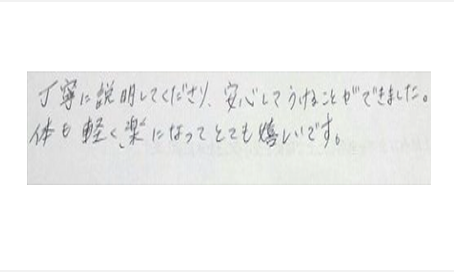 丁寧に説明してくださり、安心してうけることができました。
体も軽く楽になってとても嬉しいです。